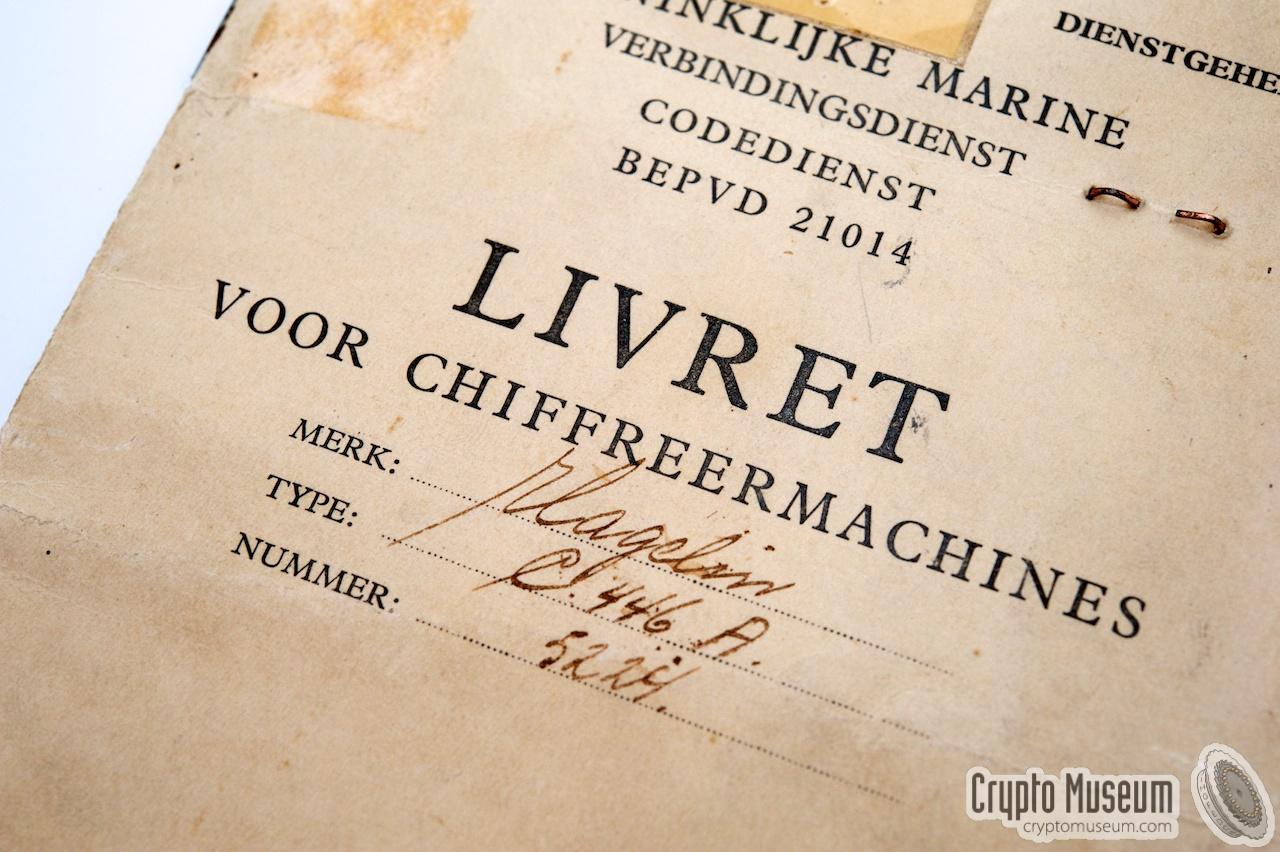 DIENSTGEHEI
NINKLIJKE MARINE
VERBINDINGSDIENST
CODEDIENST
BEPVD 21014
LIVRET
VOOR CHIFFREERMACHINES
MERK: Hagelin
TYPE: C. 446 A.
NUMMER:
Crypto Museum
cryptomuseum.com